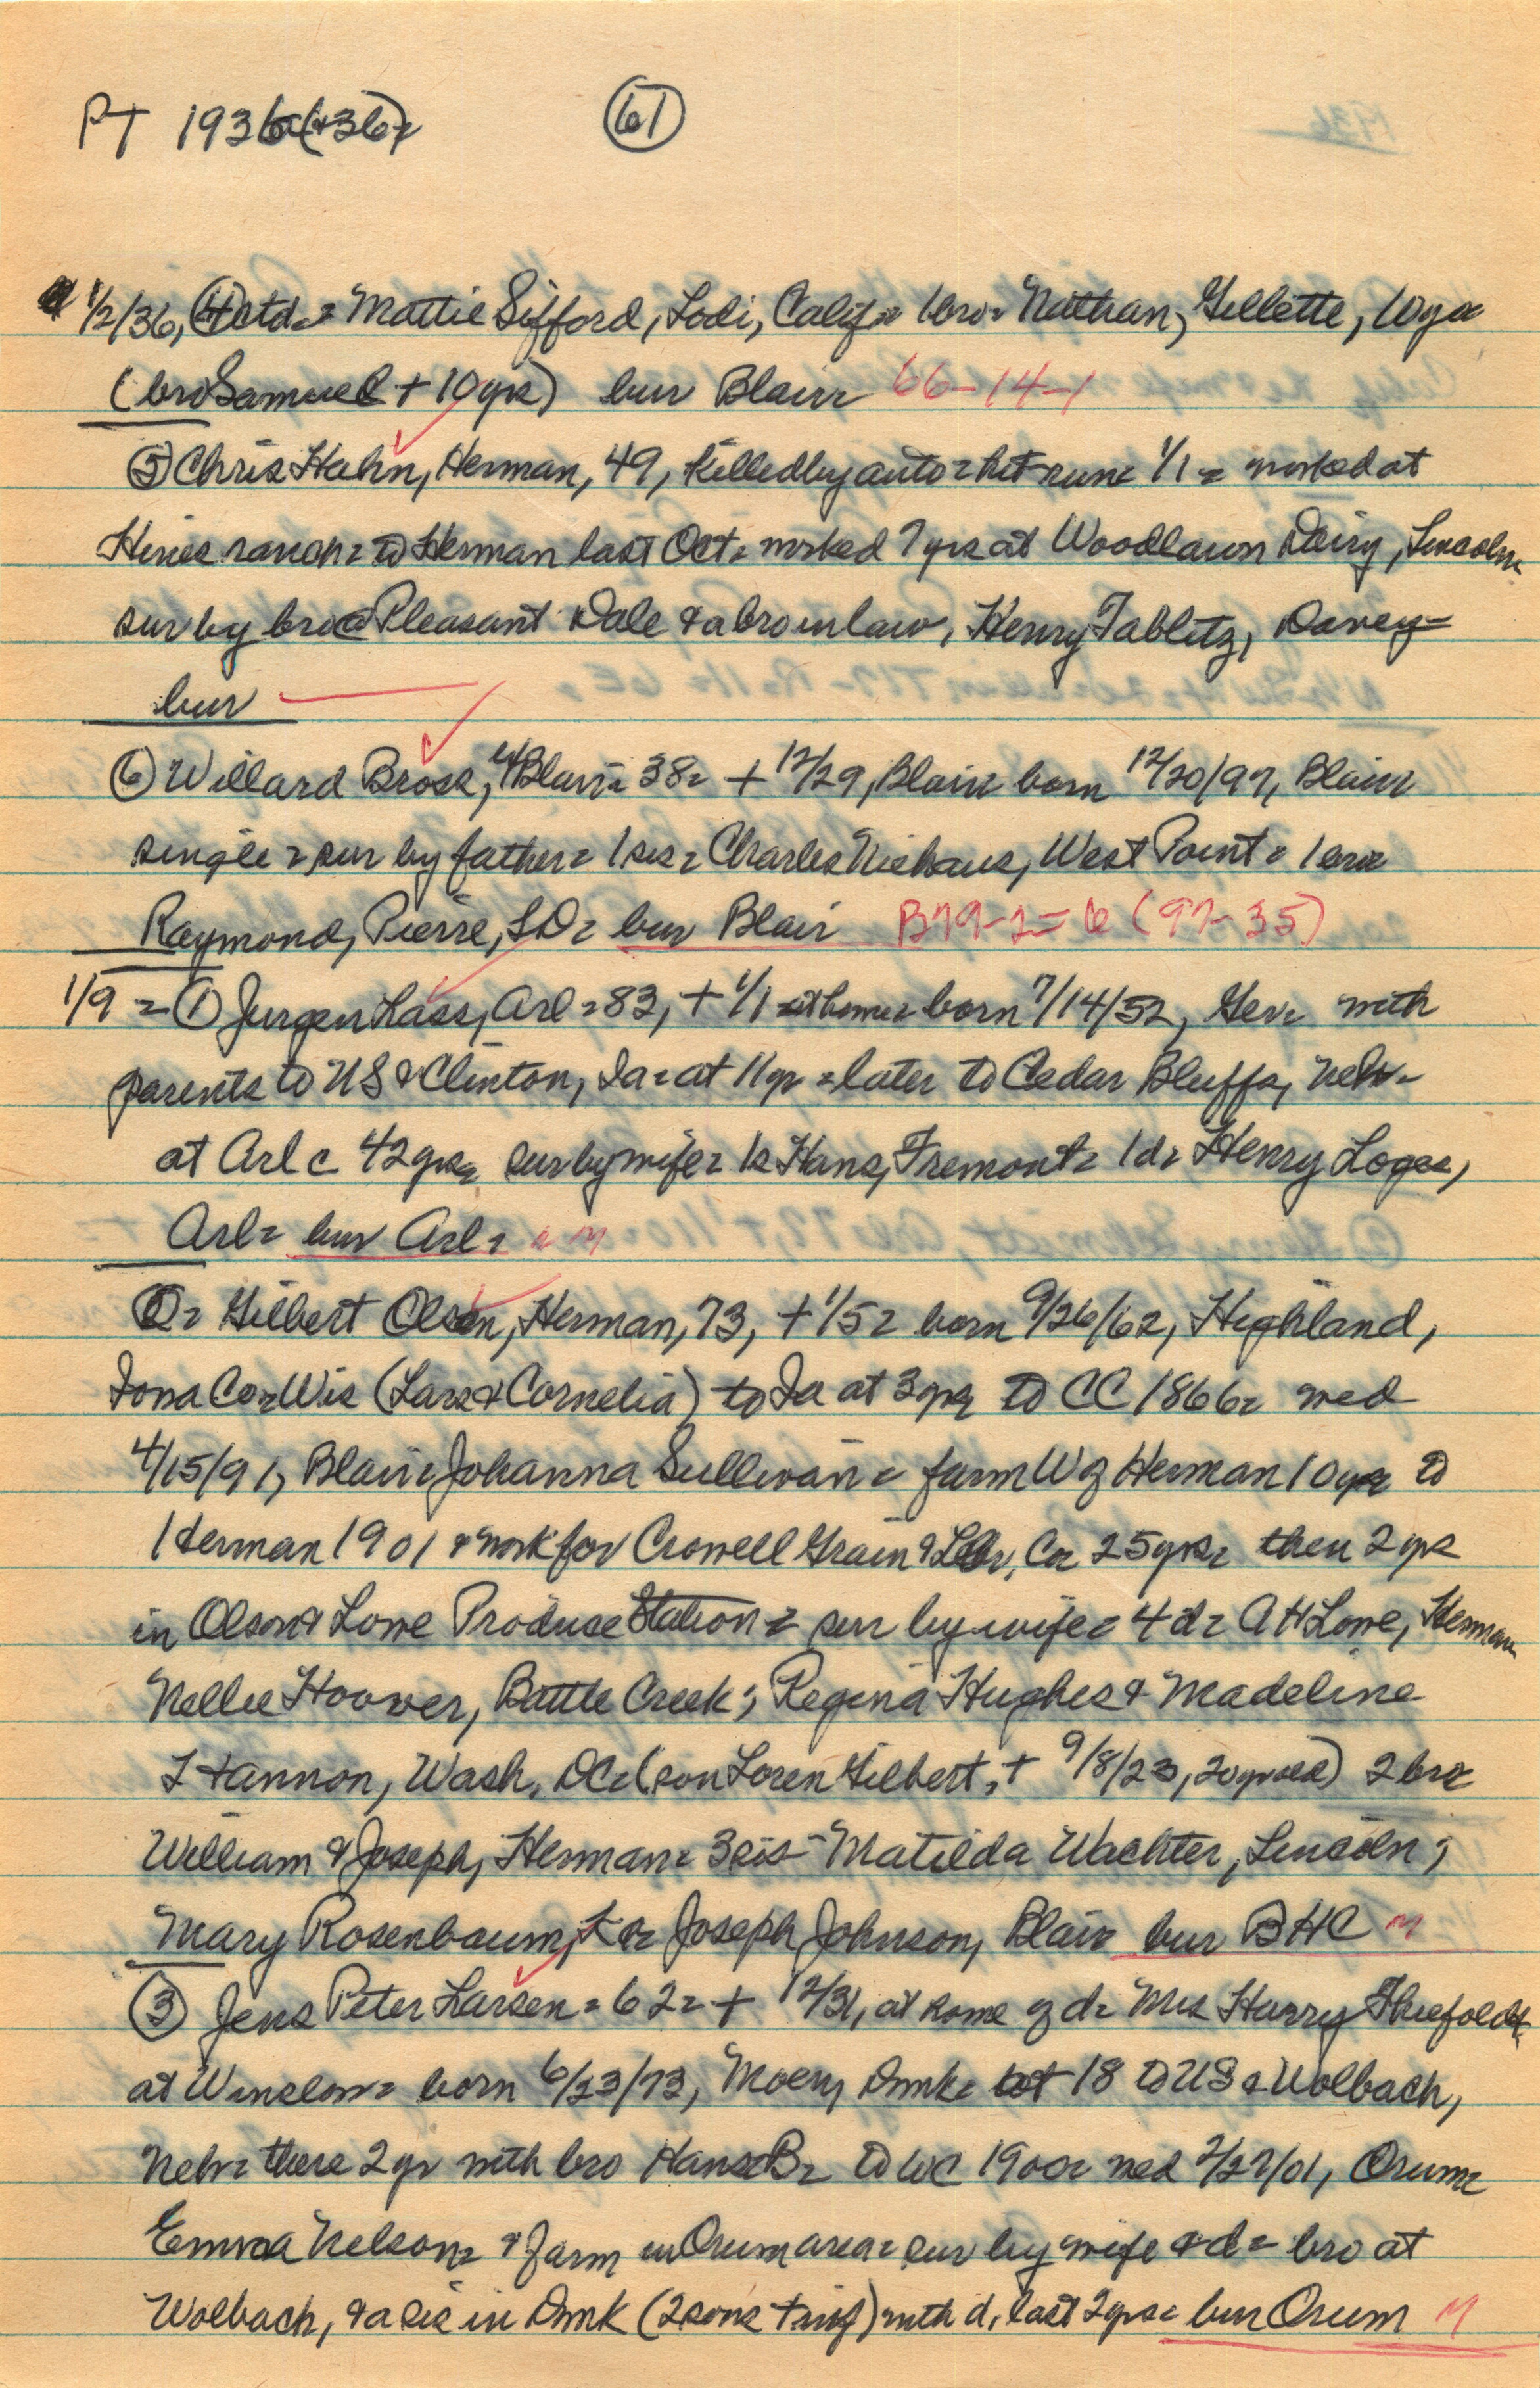 PT 1936 (+36)=
61
1/2/36, (4) ctd = Mattie Sifford, Lodi, Calif = 1 bro = Nathan, Gillette, Wyo =
(bro Samuel + 10 yrs) bur Blair = 66-14-1
(5) Chris Hahn, Herman, 49, killed by auto = hit-run = 1/1 = worked at
Hines ranch = to Herman last Oct = worked 7 yrs at Woodlawn Dairy, Lincoln =
sur by bro @ Pleasant Dale & a bro in law, Henry Tablitz, Davey =
bur —
(6) Willard Brose, Blair = 38 = + 12/29, Blair = born 12/20/97, Blair =
single = sur by father = 1 sis = Charles Niehaus, West Point = 1 bro =
Raymond, Pierre, SD = bur Blair B79-2=6 (97-35)
1/9 = (1) Jurgen Lass, Arl = 83, + 1/1 at home = born 7/14/52, Ger = with
parents to US & Clinton, Ia = at 11 yr = later to Cedar Bluffs, Neb =
at Arl c 42 yrs = sur by wife = 1s Hans, Fremont = 1d = Henry Loges,
Arl = bur Arl = M
(2) = Gilbert Olsen, Herman, 73, + 1/5 = born 9/26/62, Highland,
Iowa Co = Wis (Lars & Cornelia) to Ia at 3 yrs = to CC 1866 = med
4/15/91, Blair = Johanna Sullivan = farm W of Herman 10 yrs = to
Herman 1901 & work for Crowell Grain & Lbr, Co = 25 yrs = then 2 yrs
in Olson & Lowe Produce Station = sur by wife = 4 d = A H Lowe, Herman
Nellie Hoover, Battle Creek; Regina Hughes & Madeline
Hannon, Wash, DC = (son Loren Gilbert, + 9/8/23, 20 yr old) 2 bro =
William & Joseph, Herman = 3 sis - Matilda Wachter, Lincoln;
Mary Rosenbaum, & Joseph Johnson, Blair = bur BHC M
(3) Jens Peter Larsen = 62 = + 12/31, at home of d = Mrs Harry
at Winslow = born 6/23/73, Moen, Dmk = at 18 to US & Wolbach,
Neb = there 2 yr with bro Hans B = to WC 1900 = med 2/27/01, Orum =
Emma Nelson = & farm in Orum area = sur by wife & d = bro at
Wolbach, & a sis in Dmk (2 sons + inf) with d, last 2 yrs = bur Orum M